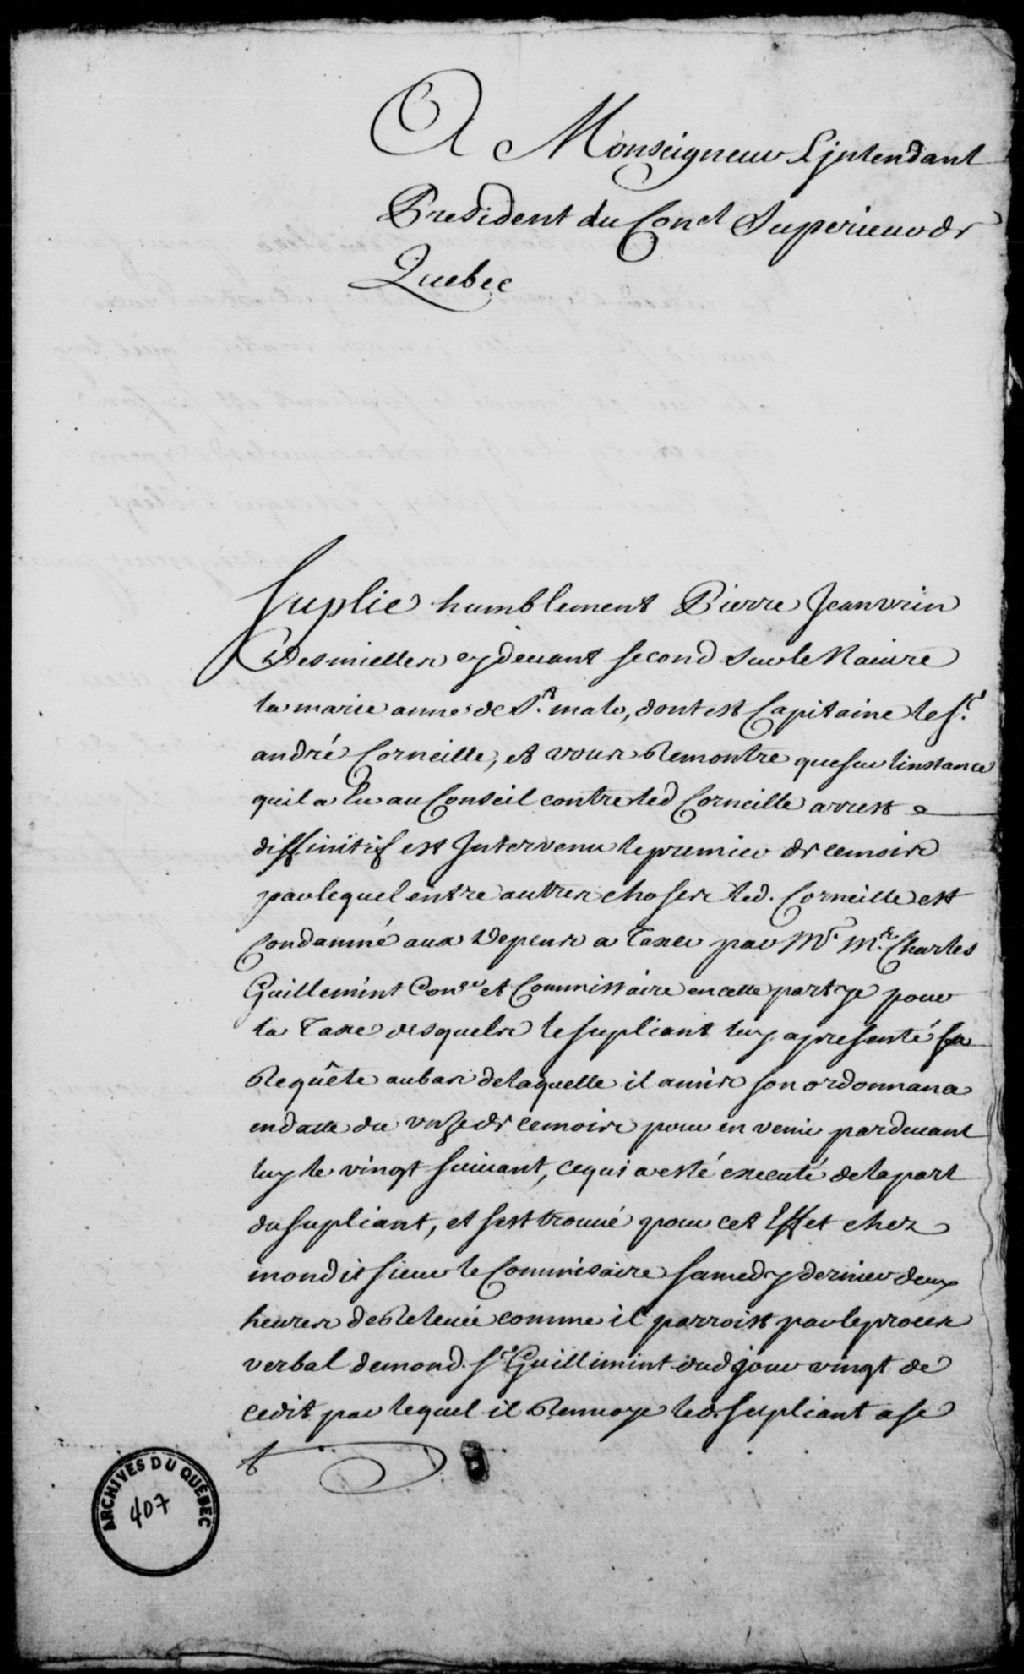 A Monseigneur Lintendant
President du Con.el Superieur de
Quebec
Suplie humblement Pierre Jeanvrin
Desmielles cy devant second sur le Navire
la marie anne de St. malo, dont est Capitaine le Sr.
andré Corneille, et vous Remontre que sur linstance
quil a Eu au Conseil contre led Corneille arrest
diffinitif est Intervenu le premier de ce mois
par lequel entre autres choses led. Corneille est
Condamné aux depens a Taxer par Mr. Me. Charles
Guillemint Conser et Commissaire en cette partye pour
la Taxe desquels le supliant luy a presenté sa
Requête au bas de laquelle il a mis son ordonnance
en datte du unze de ce mois pour en venir pardevant
luy le vingt suivant, ce qui a esté executé de la part
du supliant, et sest trouvé pour cet Effet chez
mondit sieur le Commissaire samedy dernier deux
heures de Relevée comme il parroist par le proces
verbal de mond. Sr. Guillimint dud jour vingt de
cedit par lequel il Renvoye led supliant a se
ARCHIVES DU QUÉBEC
407